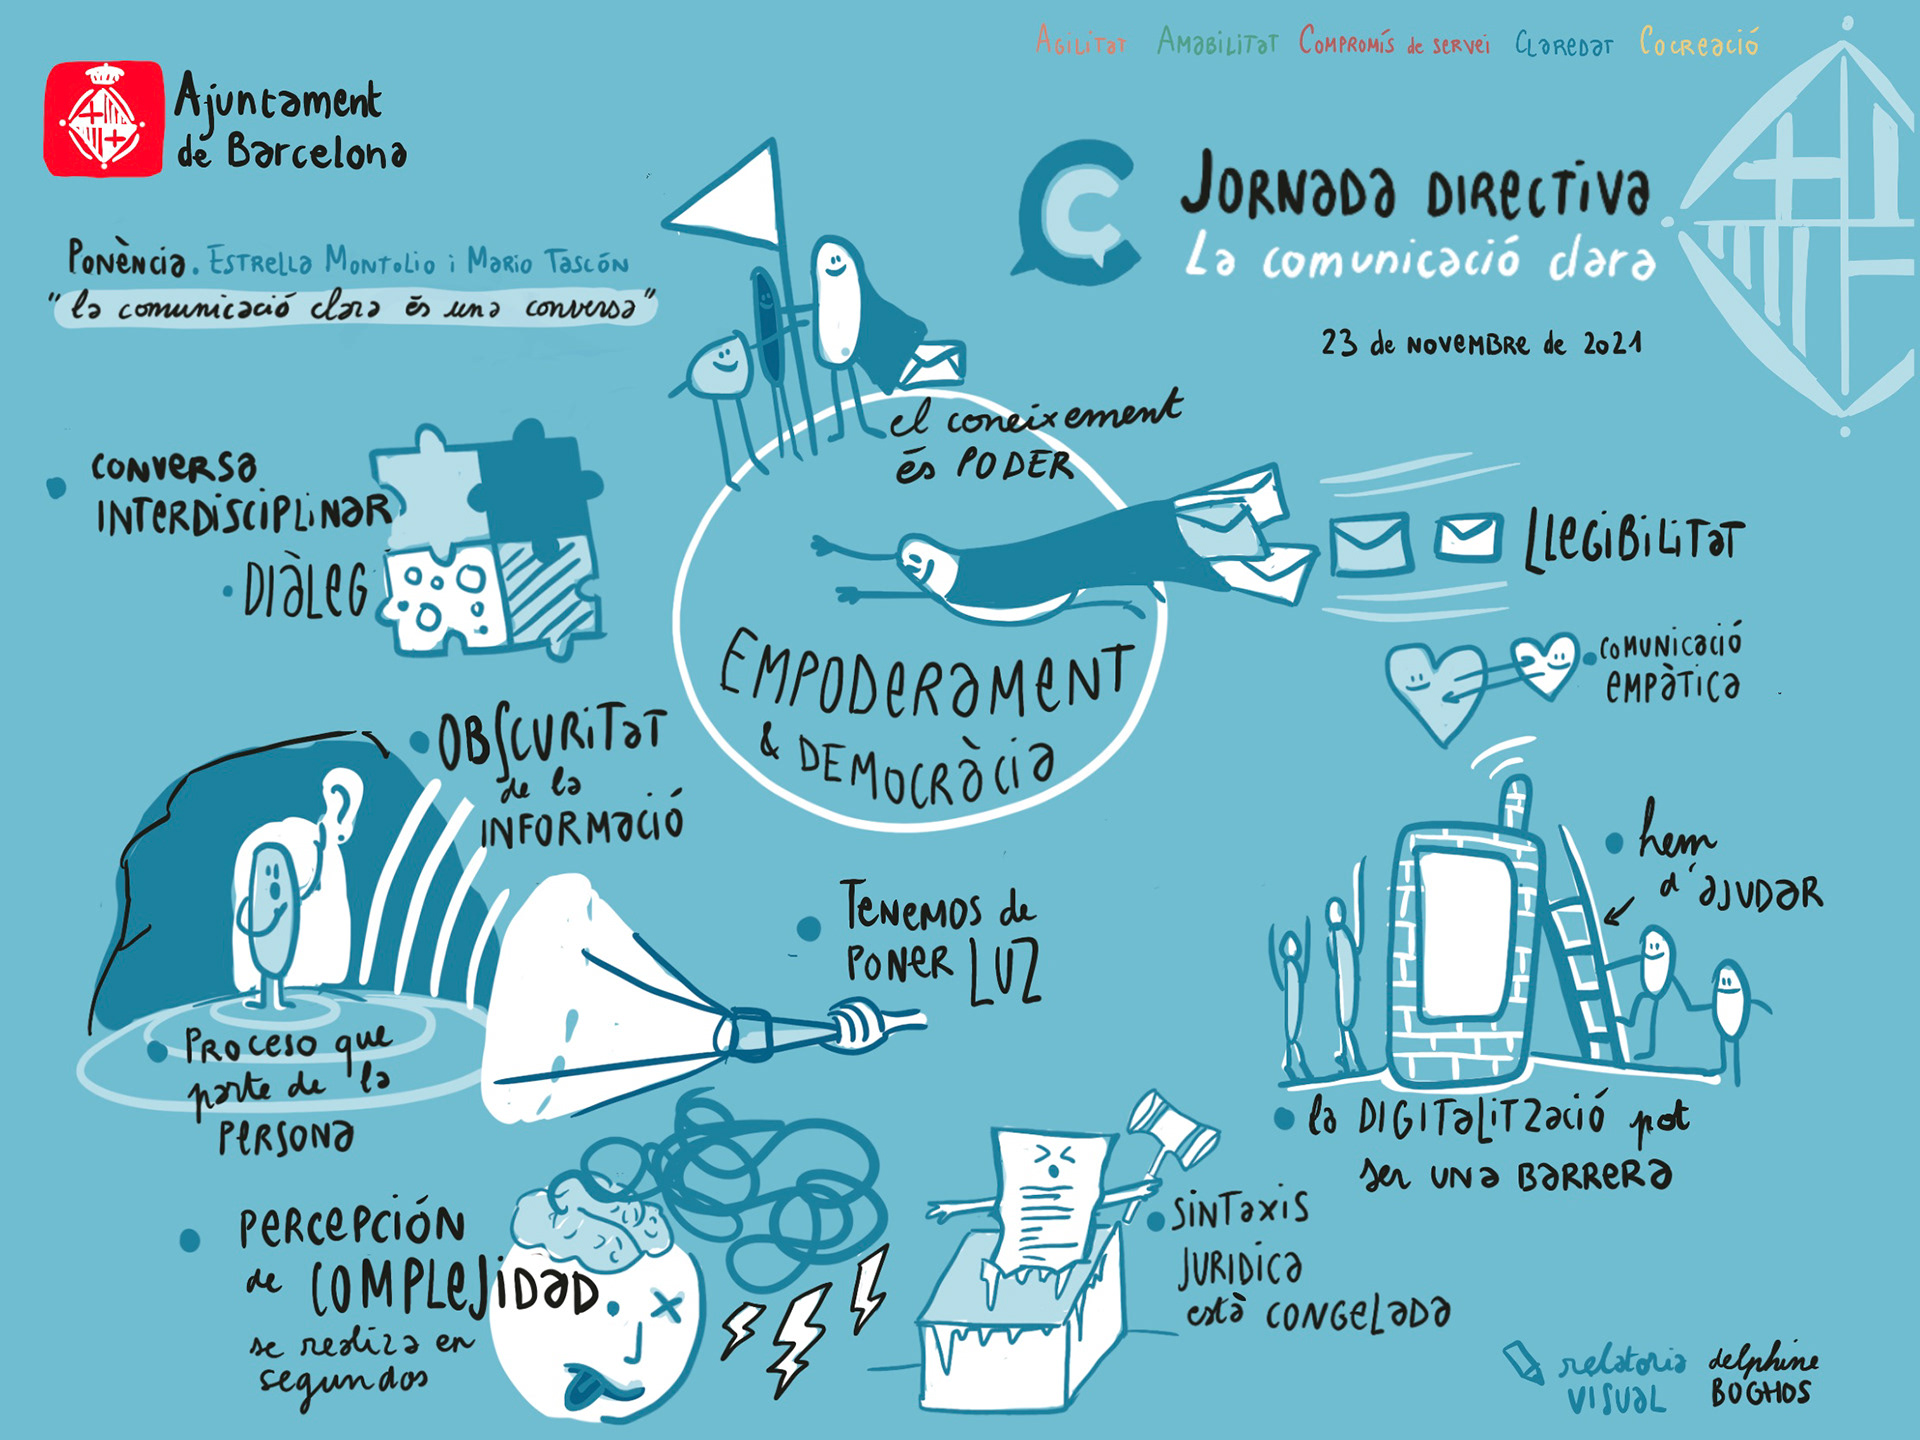 Agilitat Amabilitat Compromís de servei Claredat Cocreació
Ajuntament
de Barcelona
Jornada directiva
La comunicació clara
23 de novembre de 2021
Ponència. Estrella Montolio i Mario Tascón
"la comunicació clara és una conversa"
el coneixement
és PODER
Conversa
interdisciplinar
Diàleg
Llegibilitat
Comunicació
empàtica
Empoderament
& Democràcia
Obscuritat
de la
informació
Tenemos de
poner luz
hem
d'ajudar
Proceso que
parte de la
persona
la digitalització pot
ser una barrera
Percepción
de complejidad
se realiza en
segundos
Sintaxis
juridica
està congelada
relatoria
visual
delphine
Boghos